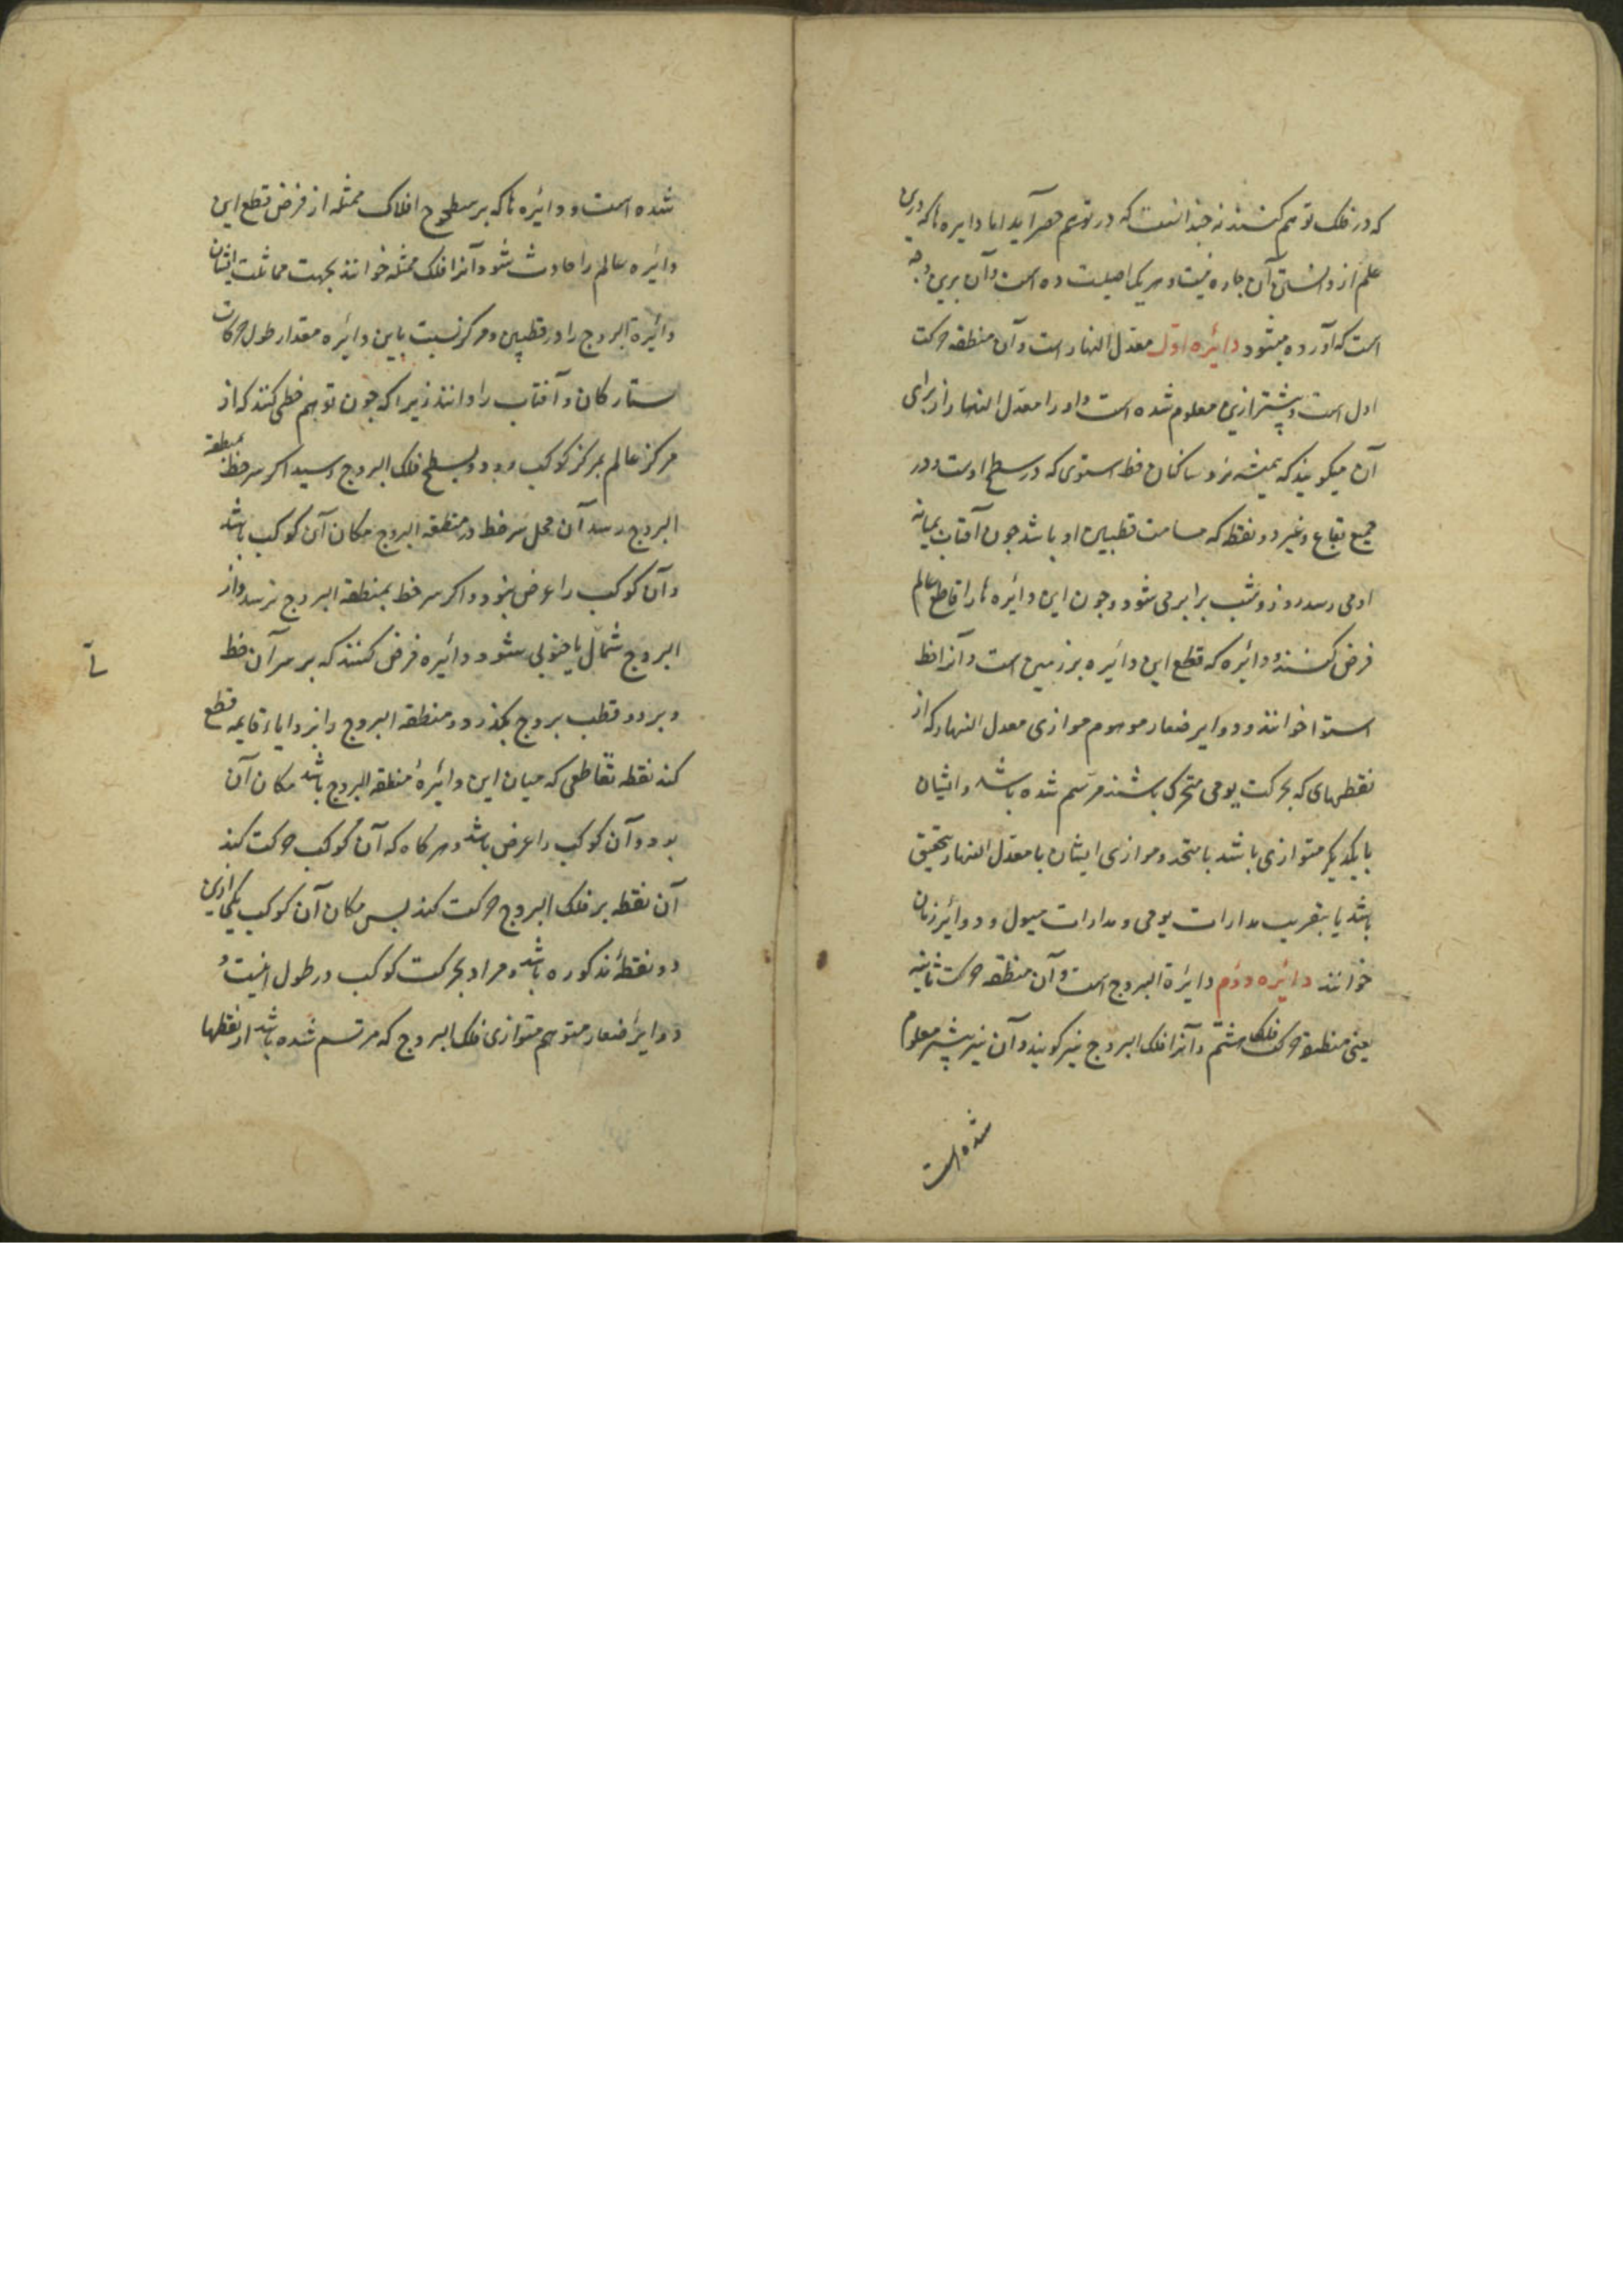 که در فلک توهم کنند نه چندانست که در توهم حصر آید اما دایره ها که درین
علم از دانستن آن چاره نیست و هر یکی اصلیست ده است و آن برین وجه
است که آورده میشود دائره اول معدل النهار است و آن منطقه حرکت
اول است و پیشتر ازین معلوم شده است و او را معدل النهار از برای
آن میگویند که همیشه نزد ساکنان خط استوی که در سطح اوست و در
جمیع بقاع و غیر دو نقطه که مسامت قطبین او باشد چون آفتاب بمیانه
او می رسد روز و شب برابر می شود و چون این دائره ها را قاطع عالم
فرض کنند و دائره که قطع این دائره بر زمین است و آنرا خط
استوا خوانند و دوایر صغار موهوم موازی معدل النهار که از
نقطهای که بحرکت یومی متحرک باشند مرتسم شده باشد و ایشان
بایکدیگر متوازی باشد یا متحد و موازی ایشان با معدل النهار بتحقیق
باشد یا بتقریب مدارات یومی و مدارات میول و دوائر زمان
خوانند دائره دوم دایرة البروج است و آن منطقه حرکت ثانیه
یعنی منطقه حرکت فلک هشتم و آنرا فلک البروج نیز گویند و آن نیز پیشتر معلوم
شده است
شده است و دائره ها که بر سطوح افلاک ممثله از فرض قطع این
دائره عالم را حادث شود آنرا فلک ممثله خوانند بجهت مماثلت ایشان
دائرة البروج را در قطبین و مرکز نسبت باین دائره مقدار طول حرکات
ستارگان و آفتاب را دانند زیرا که چون توهم خطی کنند که از
مرکز عالم بمرکز کوکب رود و بسطح فلک البروج رسید اگر سر خط بمنطقه
البروج رسد آن محل سر خط در منطقه البروج مکان آن کوکب باشد
و آن کوکب را عرض نبود و اگر سر خط بمنطقه البروج نرسد و از
البروج شمالی یا جنوبی شود دائره فرض کنند که بر سر آن خط
و بر دو قطب بروج بگذرد و منطقه البروج را بزوایاء قایمه قطع
کند نقطه تقاطعی که میان این دائرهٔ منطقه البروج باشد مکان آن
بود و آن کوکب را عرض باشد و هر گاه که آن کوکب حرکت کند
آن نقطه بر فلک البروج حرکت کند پس مکان آن کوکب یکی ازین
دو نقطه مذکوره باشد و مراد بحرکت کوکب در طول اینست و
دوایر صغار متوهم متوازی فلک البروج که مرتسم شده باشد از نقطها